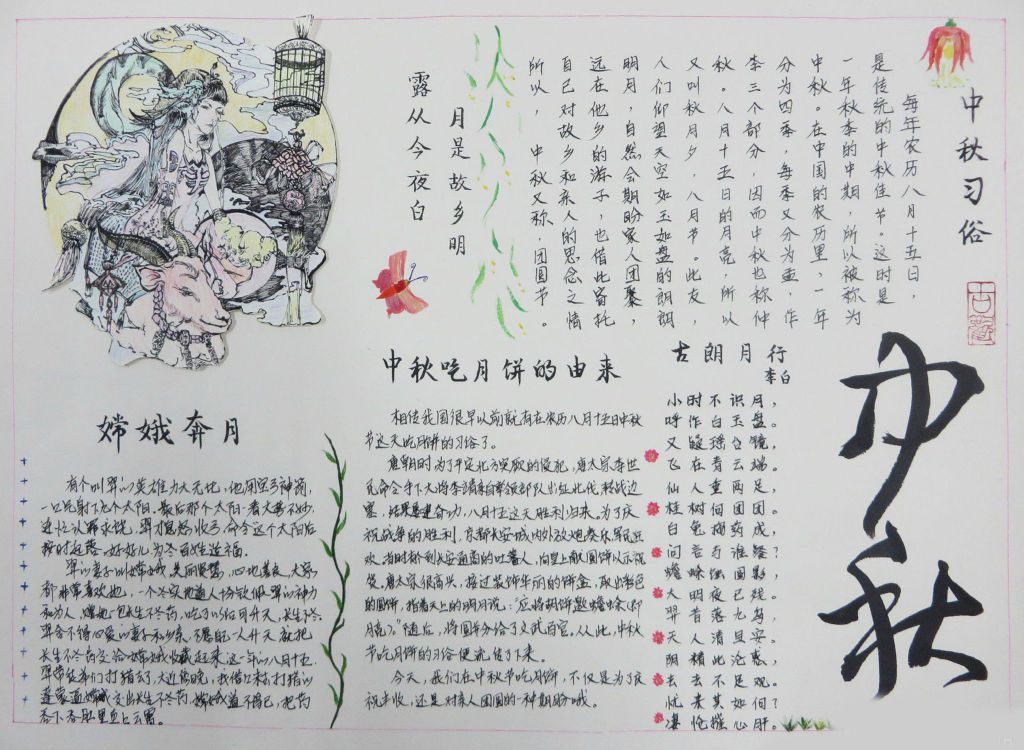 中秋习俗
每年农历八月十五日，
是传统的中秋佳节。这时是
一年秋季的中期，所以被称为
中秋。在中国的农历里，一年
分为四季，每季又分为孟、作
李三个部分，因而中秋也称仲
秋。八月十五日的月亮，所以
又叫秋月夕，八月节。此友，
人们仰望天空如玉如盘的朗朗
明月，自然会期盼家人团聚，
远在他乡的游子，也借此寄托
自己对故乡和亲人的思念之情
所以，中秋又称，团圆节。
月是故乡明
露从今夜白
中秋
古朗月行
李白
小时不识月，
呼作白玉盘。
又疑瑶台镜，
飞在青云端。
仙人垂两足，
桂树何团团。
白兔捣药成，
问言与谁餐？
蟾蜍蚀圆影，
大明夜已残。
羿昔落九乌，
天人清且安。
阴精此沦惑，
去去不足观。
忧来其如何？
凄怆摧心肝。
中秋吃月饼的由来
相传我国很早以前就有在农历八月十五日中秋
节这天吃月饼的习俗了。
唐朝时为了平定北方突厥的侵犯，唐太宗李世
民命令手下大将李靖亲自率领部队出征北伐，转战边
塞，结果屡建奇功，八月十五这天胜利归来。为了庆
祝战争的胜利，京都长安城内外放炮奏乐，军民狂
欢，当时称到长安通商的吐蕃人，向皇上献圆饼以示祝
贺，唐太宗很高兴，接过装饰华丽的饼盒，取出彩色
的圆饼，指着天上的明月说："应将胡饼邀蟾蜍（即
月亮）。"随后，将圆饼分给了文武百官。从此，中秋
节吃月饼的习俗便流传了下来。
今天，我们在中秋节吃月饼，不仅是为了庆
祝丰收，还是对亲人团圆的一种期盼哦。
嫦娥奔月
有个叫羿的英雄力大无比，他用宝弓神箭，
一口气射下九个太阳。最后那个太阳一看大事不妙
连忙认罪求饶，羿才息怒收弓，命令这个太阳后
按时起落，好好儿为老百姓造福。
羿的妻子叫嫦娥，美丽贤慧，心地善良，大家
都非常喜欢她，一个老道人十分钦佩羿的神力
和为人，赠他一包长生不老药，吃了以后可升天，长生不老
羿舍不得心爱的妻子和乡亲，不愿自己一人升天，就把
长生不老药交给嫦娥收藏起来，这一年的八月十五，